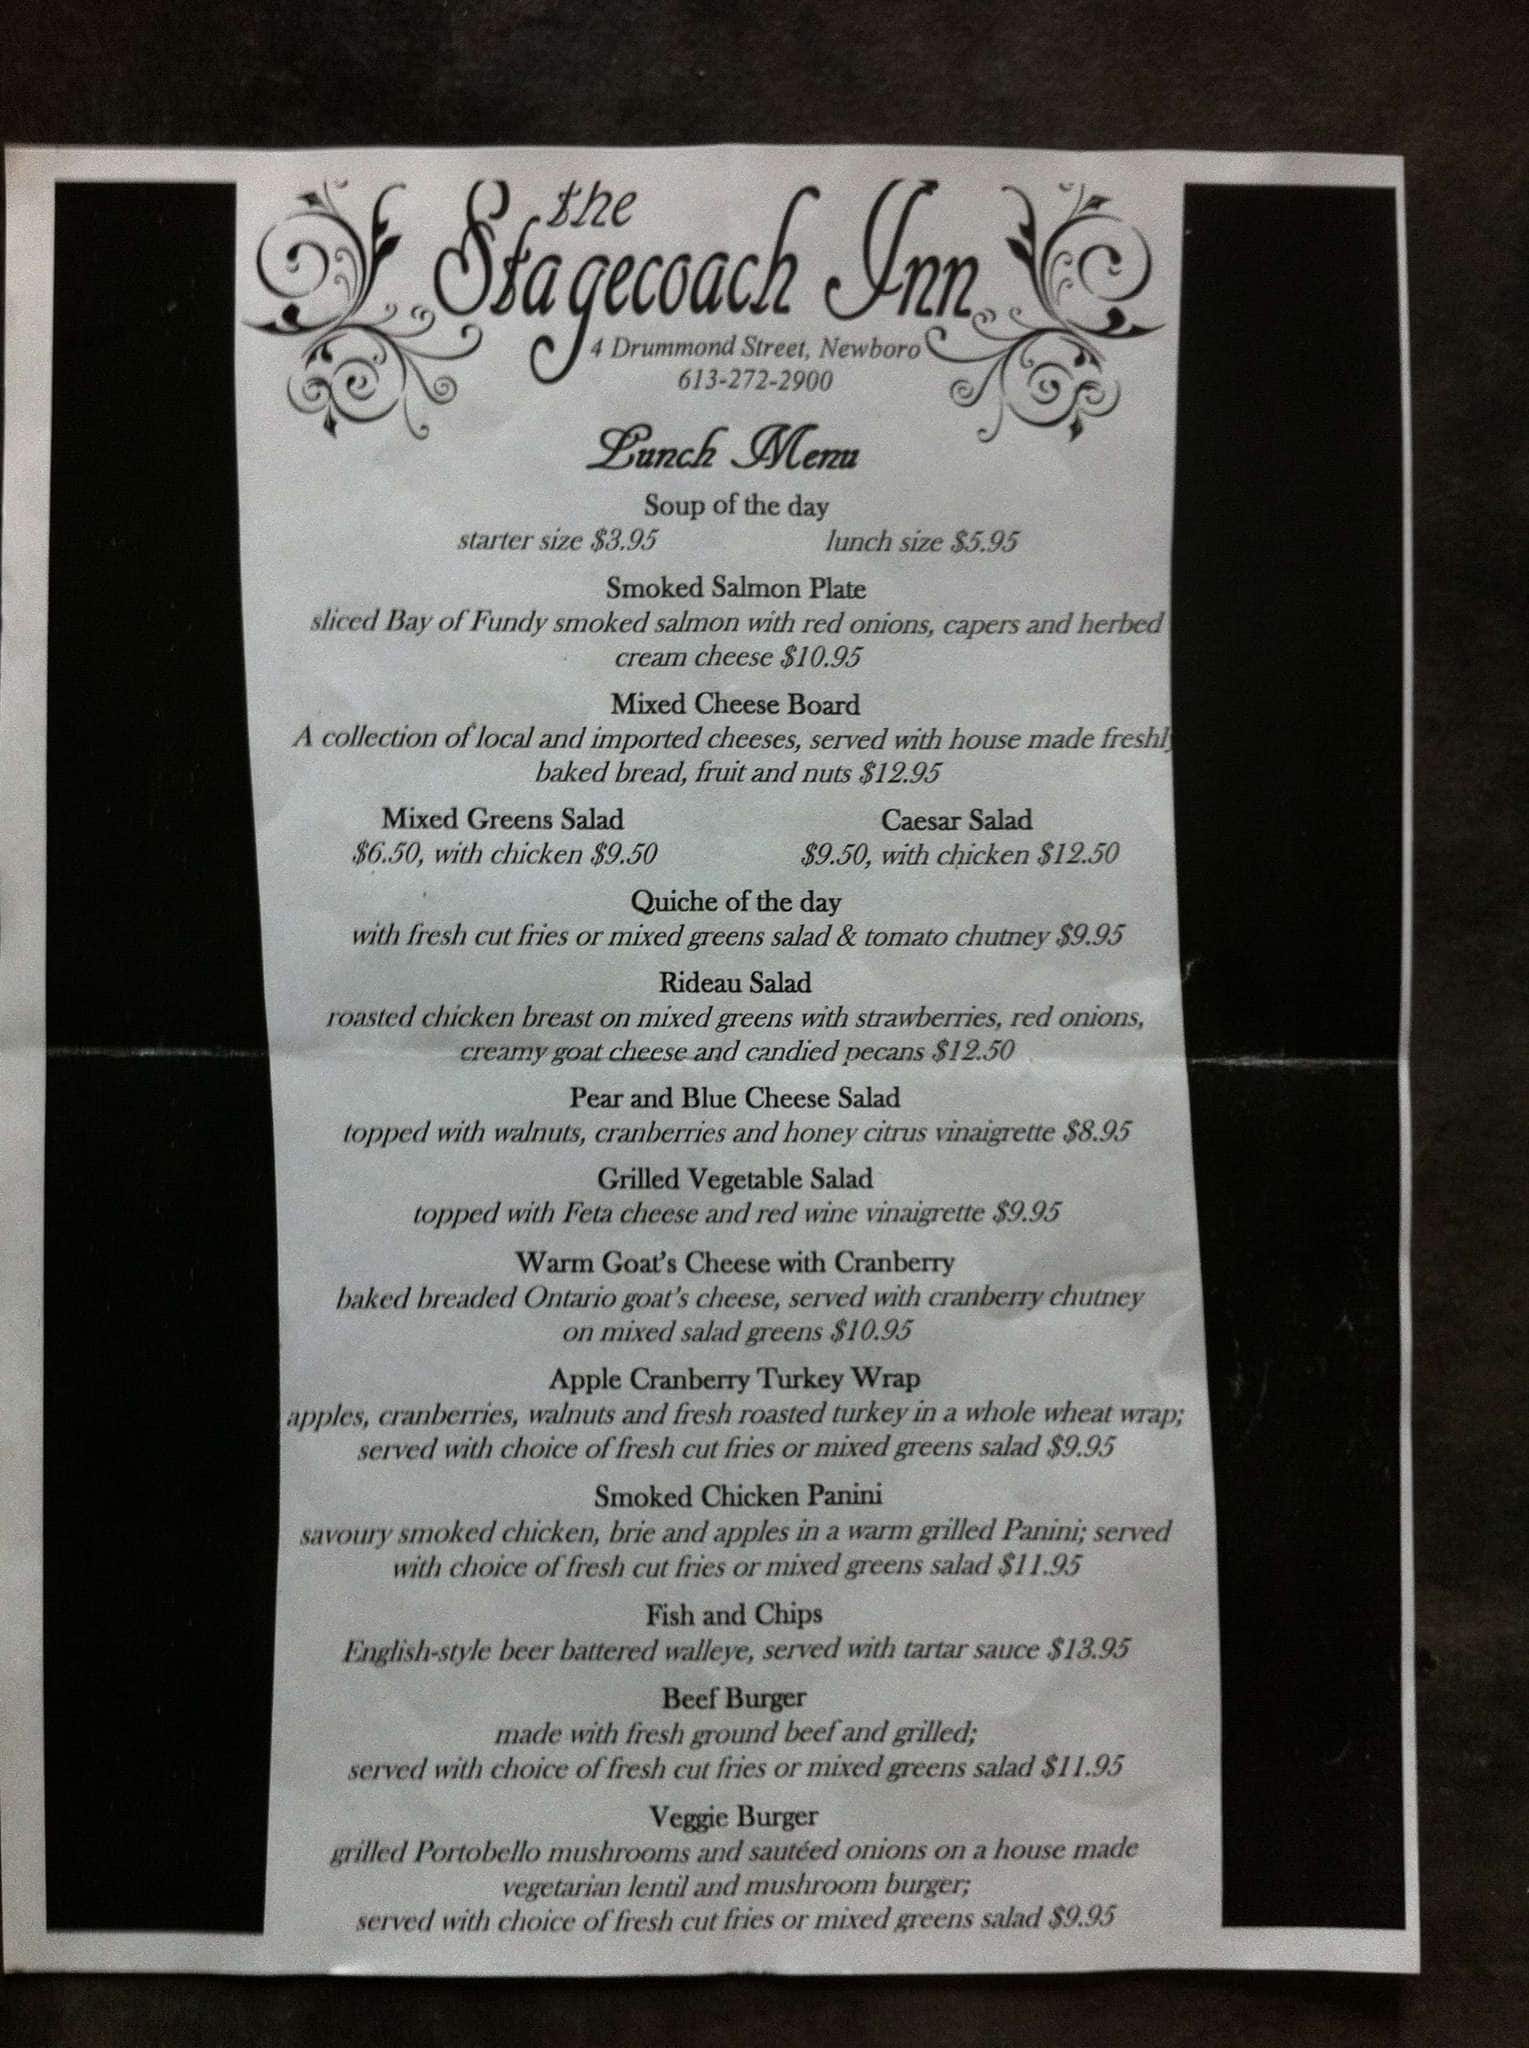 the
Stagecoach Inn
4 Drummond Street, Newboro
613-272-2900
Lunch Menu
Soup of the day
starter size $3.95 lunch size $5.95
Smoked Salmon Plate
sliced Bay of Fundy smoked salmon with red onions, capers and herbed
cream cheese $10.95
Mixed Cheese Board
A collection of local and imported cheeses, served with house made freshly
baked bread, fruit and nuts $12.95
Mixed Greens Salad Caesar Salad
$6.50, with chicken $9.50 $9.50, with chicken $12.50
Quiche of the day
with fresh cut fries or mixed greens salad & tomato chutney $9.95
Rideau Salad
roasted chicken breast on mixed greens with strawberries, red onions,
creamy goat cheese and candied pecans $12.50
Pear and Blue Cheese Salad
topped with walnuts, cranberries and honey citrus vinaigrette $8.95
Grilled Vegetable Salad
topped with Feta cheese and red wine vinaigrette $9.95
Warm Goat's Cheese with Cranberry
baked breaded Ontario goat's cheese, served with cranberry chutney
on mixed salad greens $10.95
Apple Cranberry Turkey Wrap
apples, cranberries, walnuts and fresh roasted turkey in a whole wheat wrap;
served with choice of fresh cut fries or mixed greens salad $9.95
Smoked Chicken Panini
savoury smoked chicken, brie and apples in a warm grilled Panini; served
with choice of fresh cut fries or mixed greens salad $11.95
Fish and Chips
English-style beer battered walleye, served with tartar sauce $13.95
Beef Burger
made with fresh ground beef and grilled;
served with choice of fresh cut fries or mixed greens salad $11.95
Veggie Burger
grilled Portobello mushrooms and sautéed onions on a house made
vegetarian lentil and mushroom burger;
served with choice of fresh cut fries or mixed greens salad $9.95